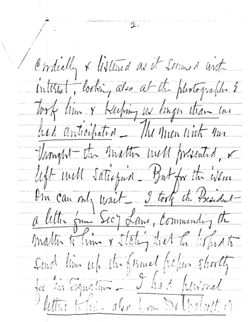 2
cordially & listened as it seemed with
interest, looking also at the photographs I
took him & keeping us longer than we
had anticipated — The men with me
thought the matter well presented, &
left well satisfied — But for the issue
One can only wait — I took the President
a letter from Secy Lane, commending the
matter to him & stating that he hoped to
send him up the formal papers shortly
for his signature — I had personal
letters to him also from